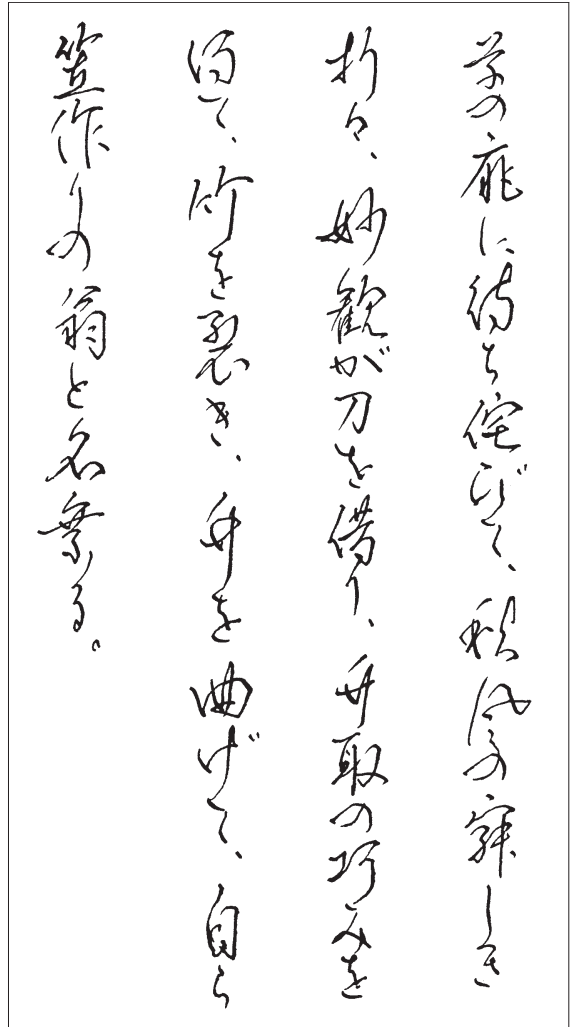 草の扉に待ち侘びて、秋風の寂しき
折々、妙観が刀を借り、竹取の巧みを
得て、竹を裂き、竹を曲げて、自ら
笠作りの翁と名乗る。